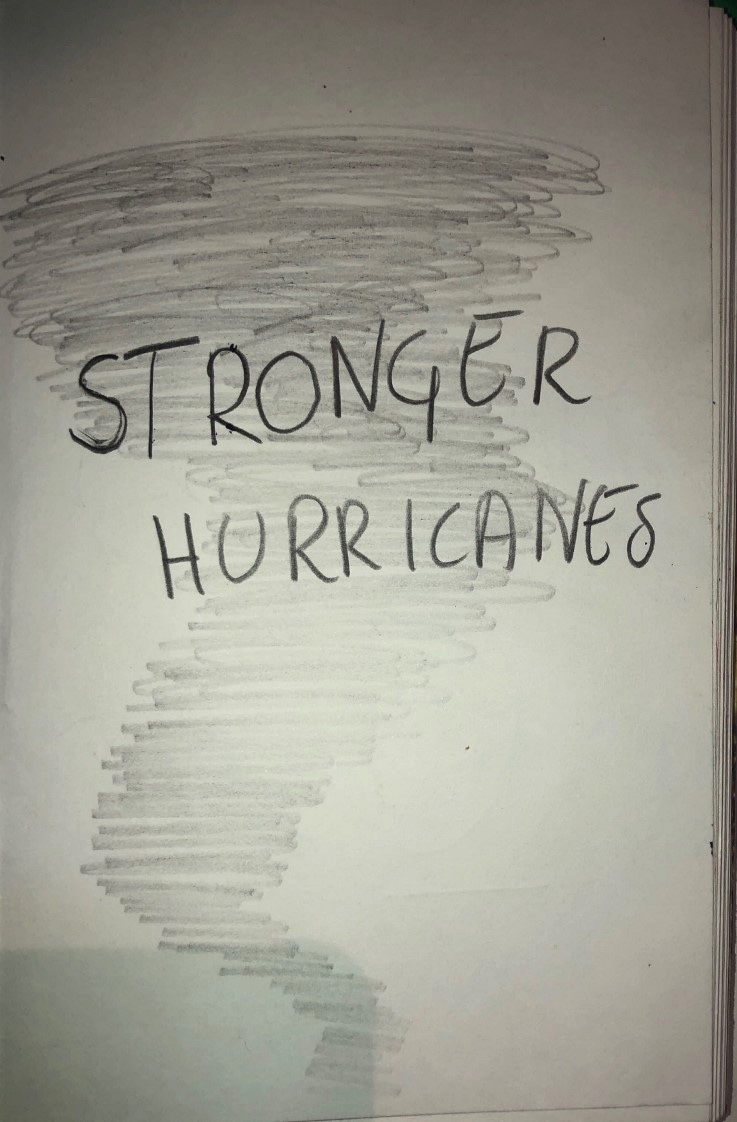 STRONGER
HURRICANES